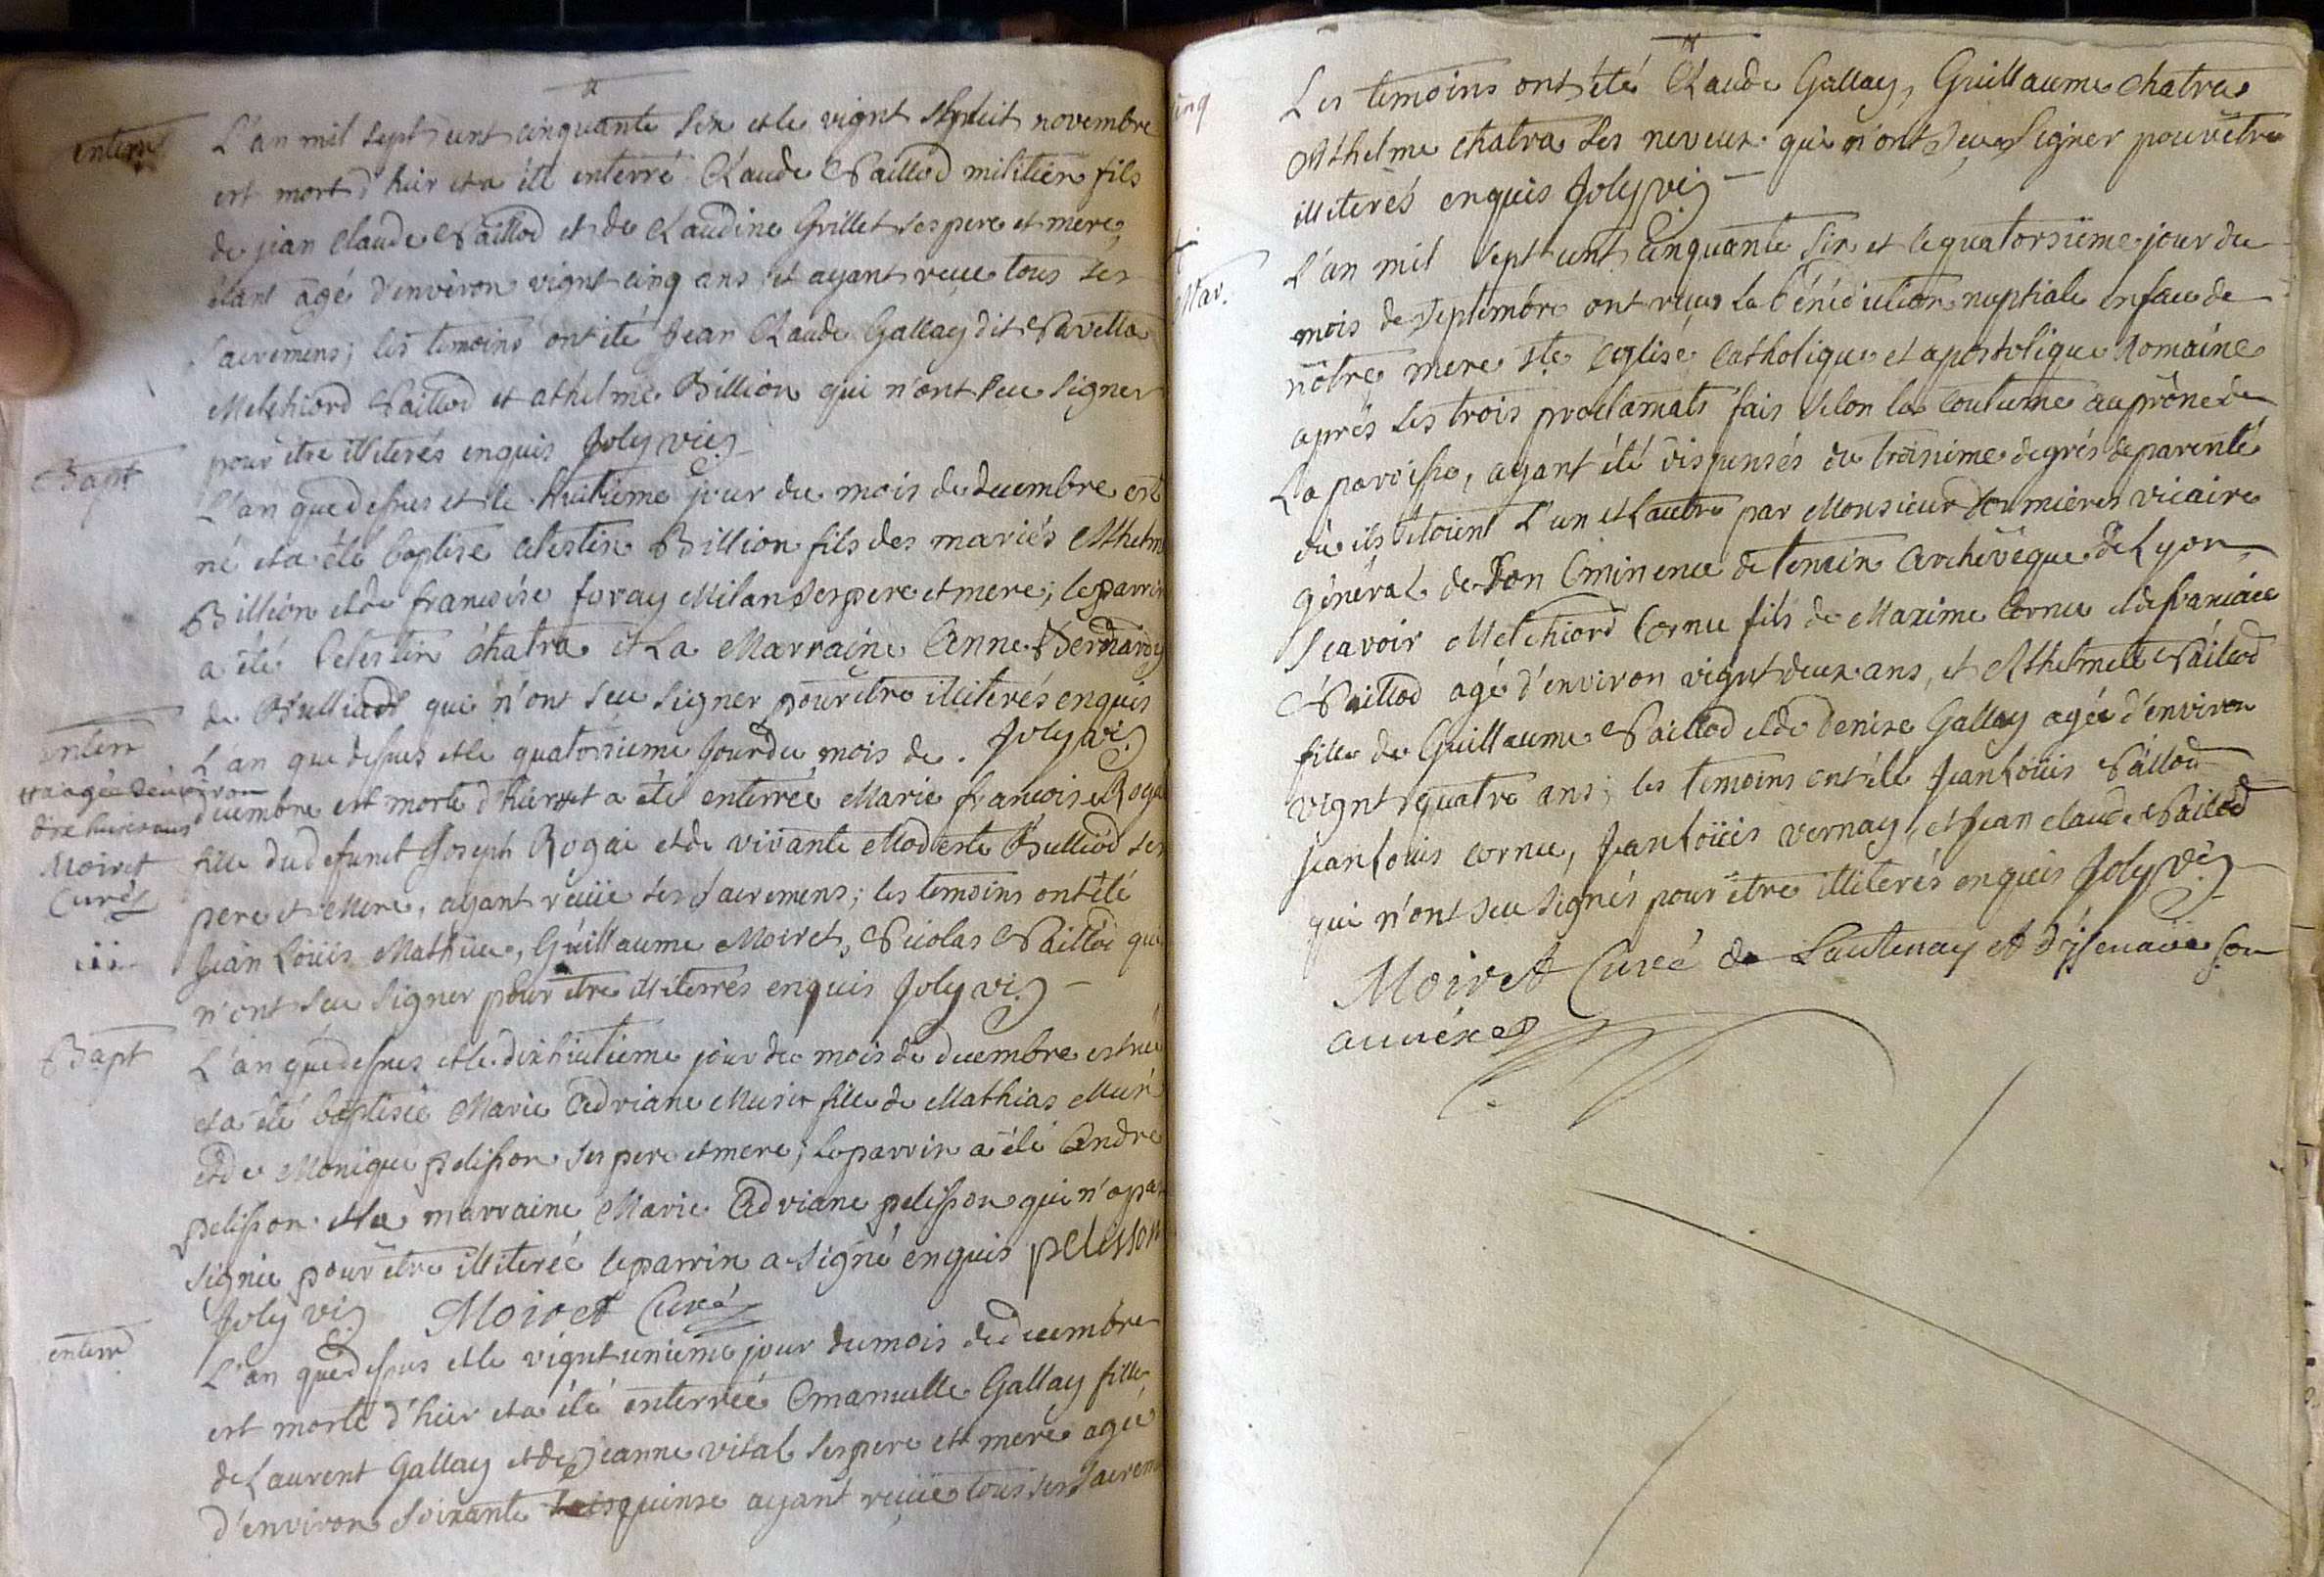 enterr
L'an mil sept cent cinquante six et le vignt huit novembre
est mort d'hier et a été enterré Claude Paillod militien fils
de jean Claude Paillod et de Claudine Grillet ses pere et mere,
étant agé d'environ vignt cinq ans, et ayant reçue tous ses
sacremens; les temoins ont été Jean Claude Gallay dit Pavella
Melchiord Paillod et athelme Billion qui n'ont seu signer
pour être illiterés enquis Joly vic.
Bapt
L'an que dessus et le huitieme jour du mois de decembre est
né et a été baptisé Celestin Billion fils des mariés Athelme
Billion et de francoise foray Milan ses pere et mere; le parrin
a été Celestin chatra et La Marraine Anne Bernardy
de Bulliard qui n'ont seu signer pour être illiterés enquis
Joly vi.
enterr
L'an que dessus et le quatorzieme Jour du mois de
et agée d'environ
dix huit ans
Moiret
Curé
decembre est morte d'hier et a été enterrée Marie francoise Roga
fille du defunct Joseph Rogai et de vivante Modeste Bulliod ses
pere et Mere, ayant reçüe ses sacremens; les temoins ont été
Jean Loüis Mathieu, Guillaume Moiret, Nicolas Paillod qui
n'ont seu signer pour être illiterrés enquis Joly vi.
Bapt
L'an que dessus et le dix huitieme jour du mois de decembre est née
et a été baptisée Marie Adriane Musir fille de Mathias Mus
et de Monique pelisson ses pere et mere; le parrin a été Andre
pelisson et la marraine Marie Adriane pelisson qui n'a pas
signée pour être illiterée le parrin a signé enquis pelisson
Joly vi. Moiret Curé
enterr
L'an que dessus et le vignt unieme jour du mois de decembre
est morte d'hier et a été enterrée Emanuelle Gallay fille
de Laurent Gallay et de Jeanne vital ses pere et mere agée
d'environ soixante quinse ayant reçüe tous ses sacrem
Les temoins ont été Claude Gallay, Guillaume chatra
Athelme chatra ses neveux qui n'ont seu signer pour être
illiterés enquis Joly vi.
Mar.
L'an mil sept cent cinquante six et le quatorsieme jour du
mois de septembre ont reçus la bénédiction nuptiale en face de
nôtre mere ste Eglise Catholique et apostolique Romaine
aprés les trois proclamats fais selon la coutume au prône de
La paroisse, ayant été dispensés du troisieme degrés de parenté
où ils étoient L'un et L'autre par Monsieur vicaire
général de Son Eminence de tencin Archevêque de Lyon
sçavoir Melchiord Cornu fils de Maxime Cornu et de francoise
Paillod agé d'environ vignt deux ans, et Athelmete Paillod
fille de Guillaume Paillod et de Denise Gallay agée d'environ
vignt quatre ans; les temoins ont été Jean Loüis Paillod
Jean Louis Cornu, Jean Loüis Vernay, et Jean Claude Paillod
qui n'ont seu signés pour être illiterés enquis Joly vi.
Moiret Curé de Lantenay et d' son
annexe